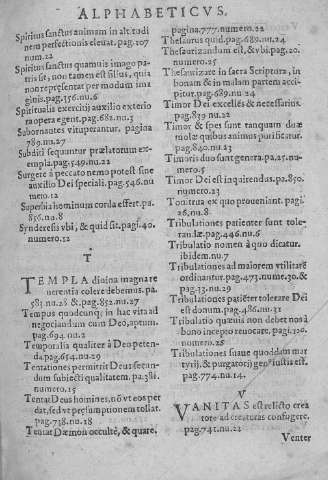 ALPHABETICVS.
Spiritus sanctus animam in altitudi
nem perfectionis eleuat. pag. 107
num. 22
Spiritus sanctus quamuis imago pa-
tris sit, non tamen est filius, quia
non repręsentat per modum ima
ginis. pag. 156. nu. 6
Spiritualia exercitij auxilio exterio
ra opera egent. pag. 682. nu. 3
Subornantes vituperantur. pagina
789. nu. 27
Subditi sequuntur prælatorum ex-
empla. pag. 549. nu. 22
Surgere à peccato nemo potest sine
auxilio Dei speciali. pag. 546. nu
mero. 12
Superbia hominum corda effert. pa.
856. nu. 8
Synderesis vbi, & quid sit. pagi. 40.
numero. 12
T
TEMPLA diuina imagna re
uerentia colere debemus. pa.
583. nu. 28 & pag. 852. nu. 27
Tempus quodcunq; in hac vita ad
negociandum cum Deo, aptum.
pag. 694. nu. 2
Temporalia qualiter à Deo peten-
da. pag. 654. nu. 29
Tentationes permittit Deus secun-
dum subiecti qualitatem. pa. 381.
numero. 15
Tentat Deus homines, nō vt eos per
dat, sed vt pręsumptionem tollat.
pag. 738. nu. 18
Tentat Dæmon occultè, & quare.
pagina. 777. numero. 22
Thesaurus quid. pag. 689. nu. 24
Thesaurizandum est, & vbi. pag. 20.
numero. 25
Thesaurizare in sacra Scriptura, in
bonam & in malam partem acci-
pitur. pag. 689. nu. 24
Timor Dei excellēs & necessarius.
pag. 839. nu. 22
Timor & spes sunt tanquam duæ
molæ quibus animus purificatur.
pag. 840. nu. 23
Timoris duo sunt genera. pa. 25. nu-
mero. 5
Timor Dei est inquirendus. pa. 850.
numero. 23
Tonitrua ex quo proueniant. pagi.
26. nu. 8
Tribulationes patienter sunt tole-
randæ. pag. 446. nu. 6
Tribulatio nomen à quo dicatur.
ibidem. nu. 7
Tribulationes ad maiorem vtilitatē
ordinantur. pag. 473. nume. 30. &
pag. 33. nu. 29
Tribulationes patiēter tolerare Dei
est donum. pag. 486. nu. 31
Tribulatio quæuis non debet nos à
bono incepto reuocare. pagi. 320.
numero. 28
Tribulationes suaue quoddam mar
tyrij, & purgatorij genus iustis est.
pag. 774. nu. 14.
V
VANITAS est relicto crea
tore ad creaturas confugere.
pag. 741. nu. 22
Venter